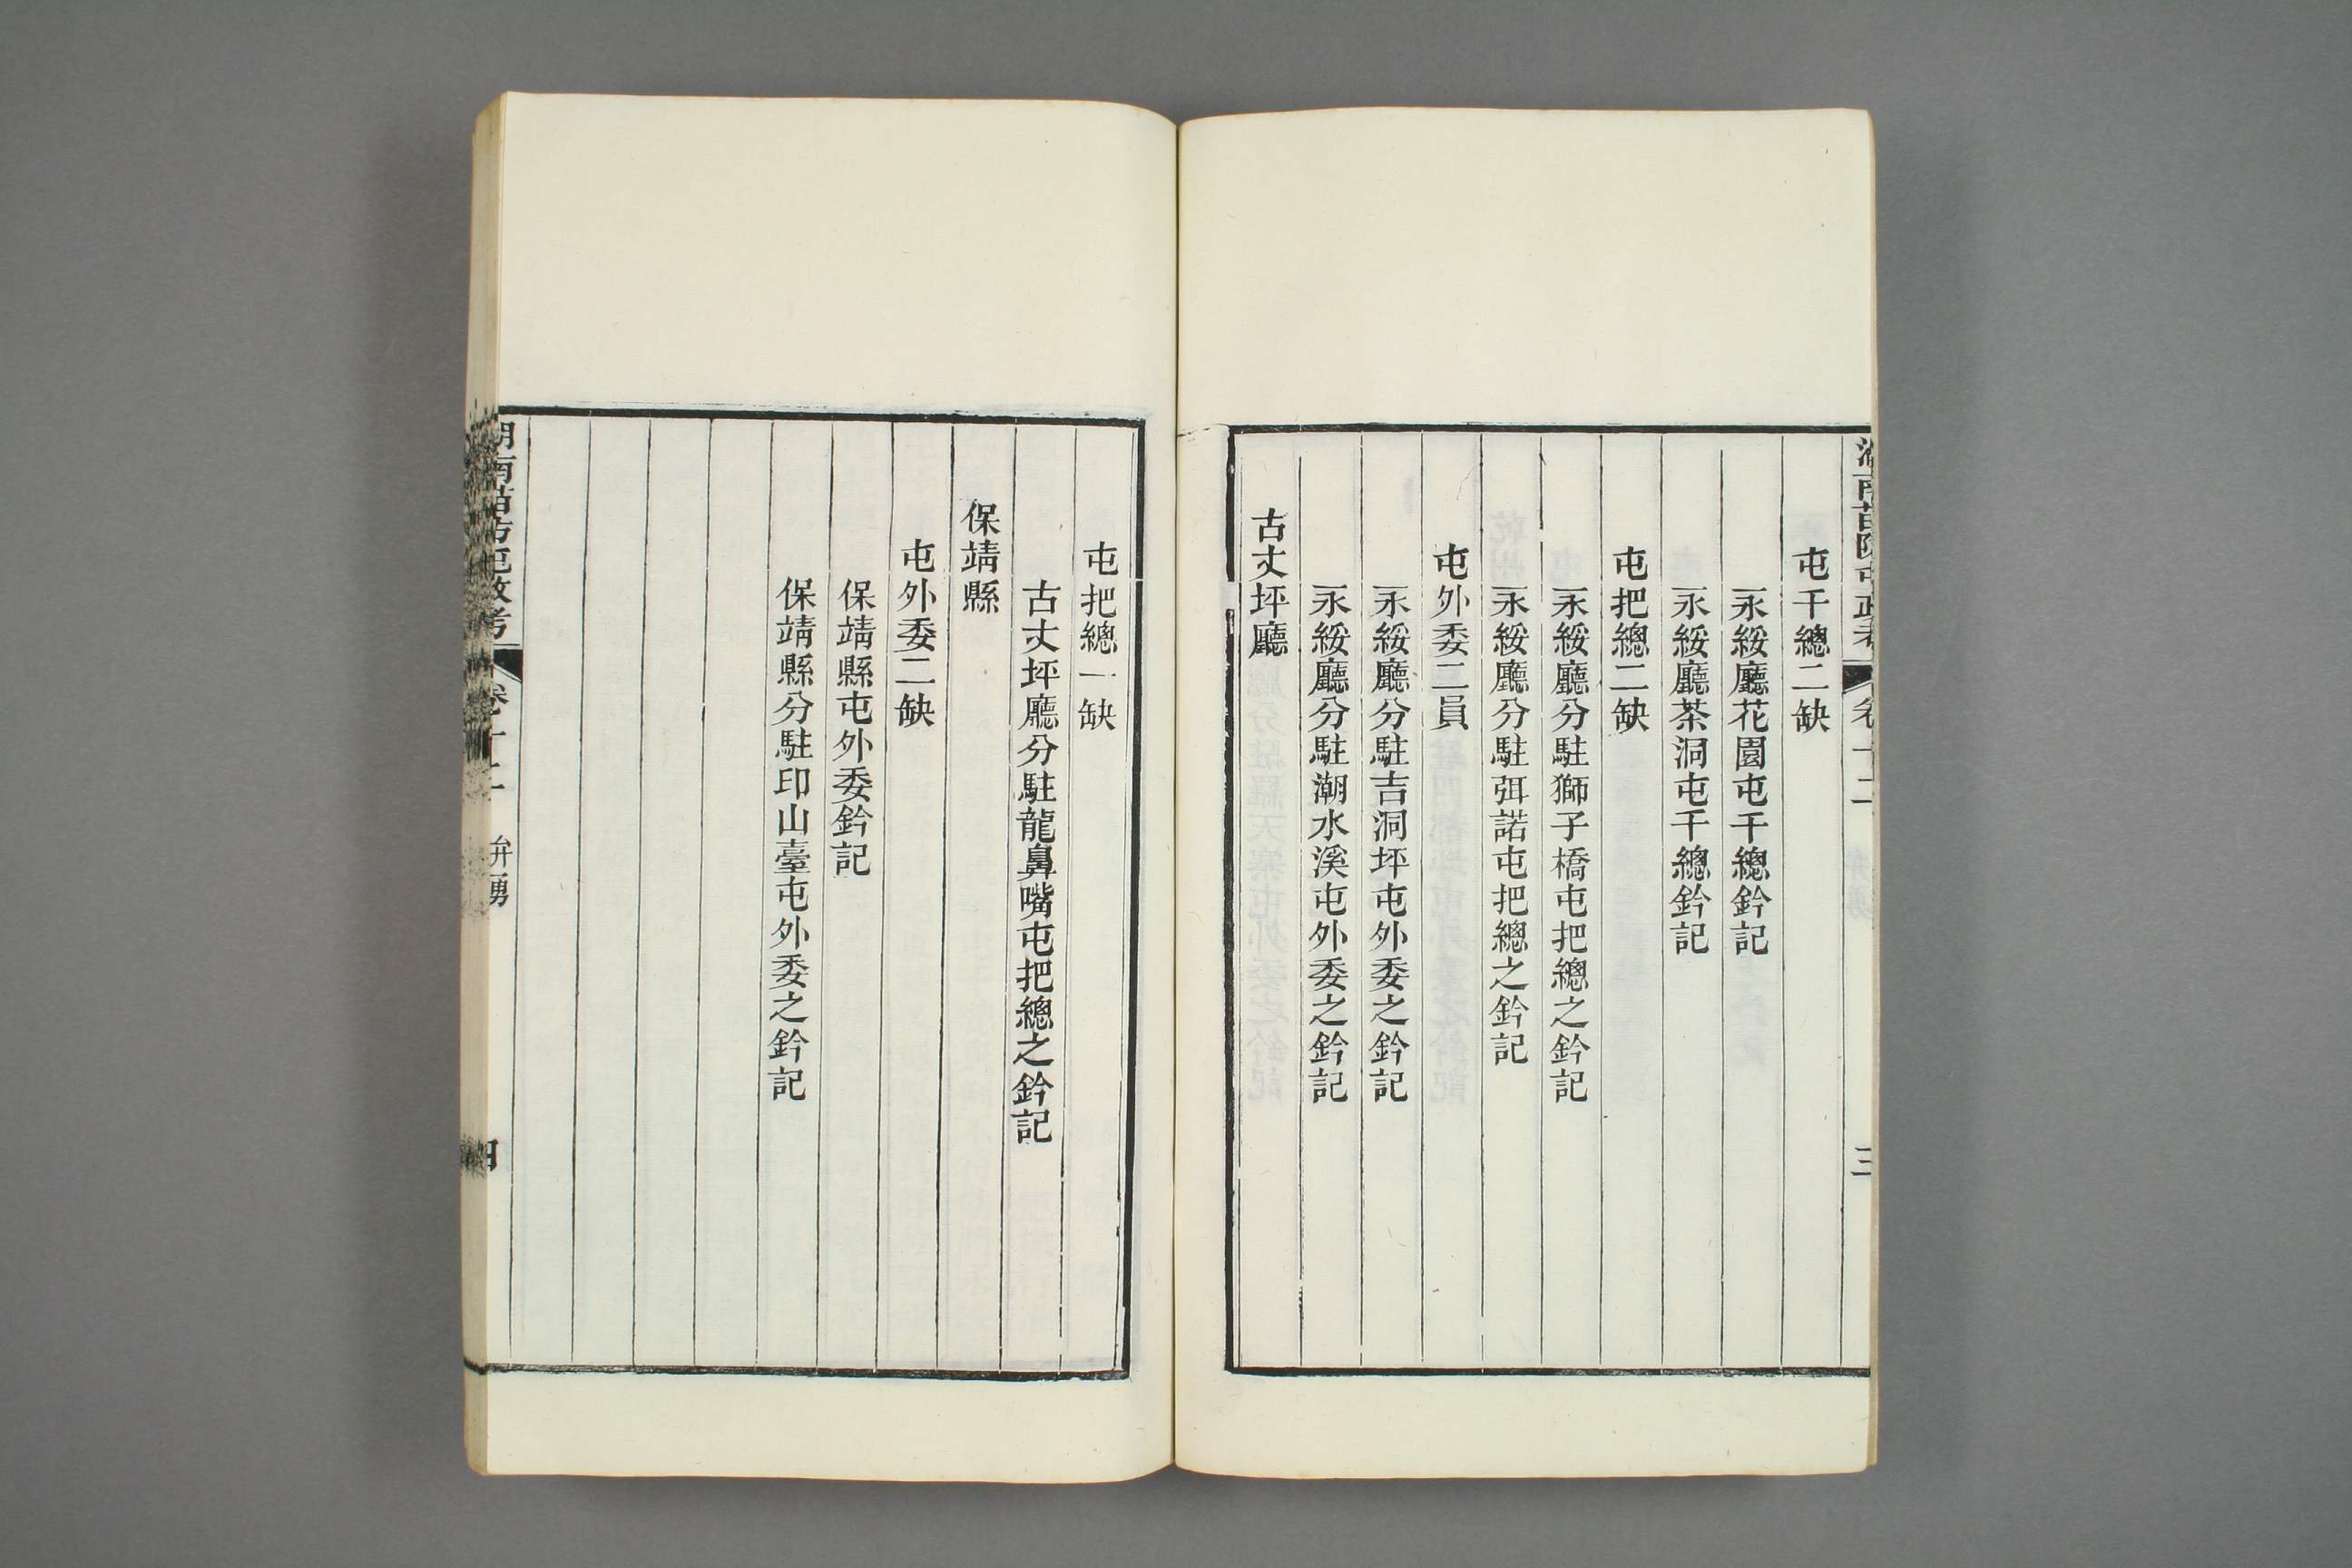 湖南苗防屯政考 卷十二 弁勇 三
屯千總二缺
永綏廳花園屯千總鈐記
永綏廳茶洞屯千總鈐記
屯把總二缺
永綏廳分駐獅子橋屯把總之鈐記
永綏廳分駐弭諾屯把總之鈐記
屯外委二員
永綏廳分駐吉洞坪屯外委之鈐記
永綏廳分駐潮水溪屯外委之鈐記
古丈坪廳
屯把總一缺
古丈坪廳分駐龍鼻嘴屯把總之鈐記
保靖縣
屯外委二缺
保靖縣屯外委鈐記
保靖縣分駐印山臺屯外委之鈐記
湖南苗防屯政考 卷十二 弁勇 四